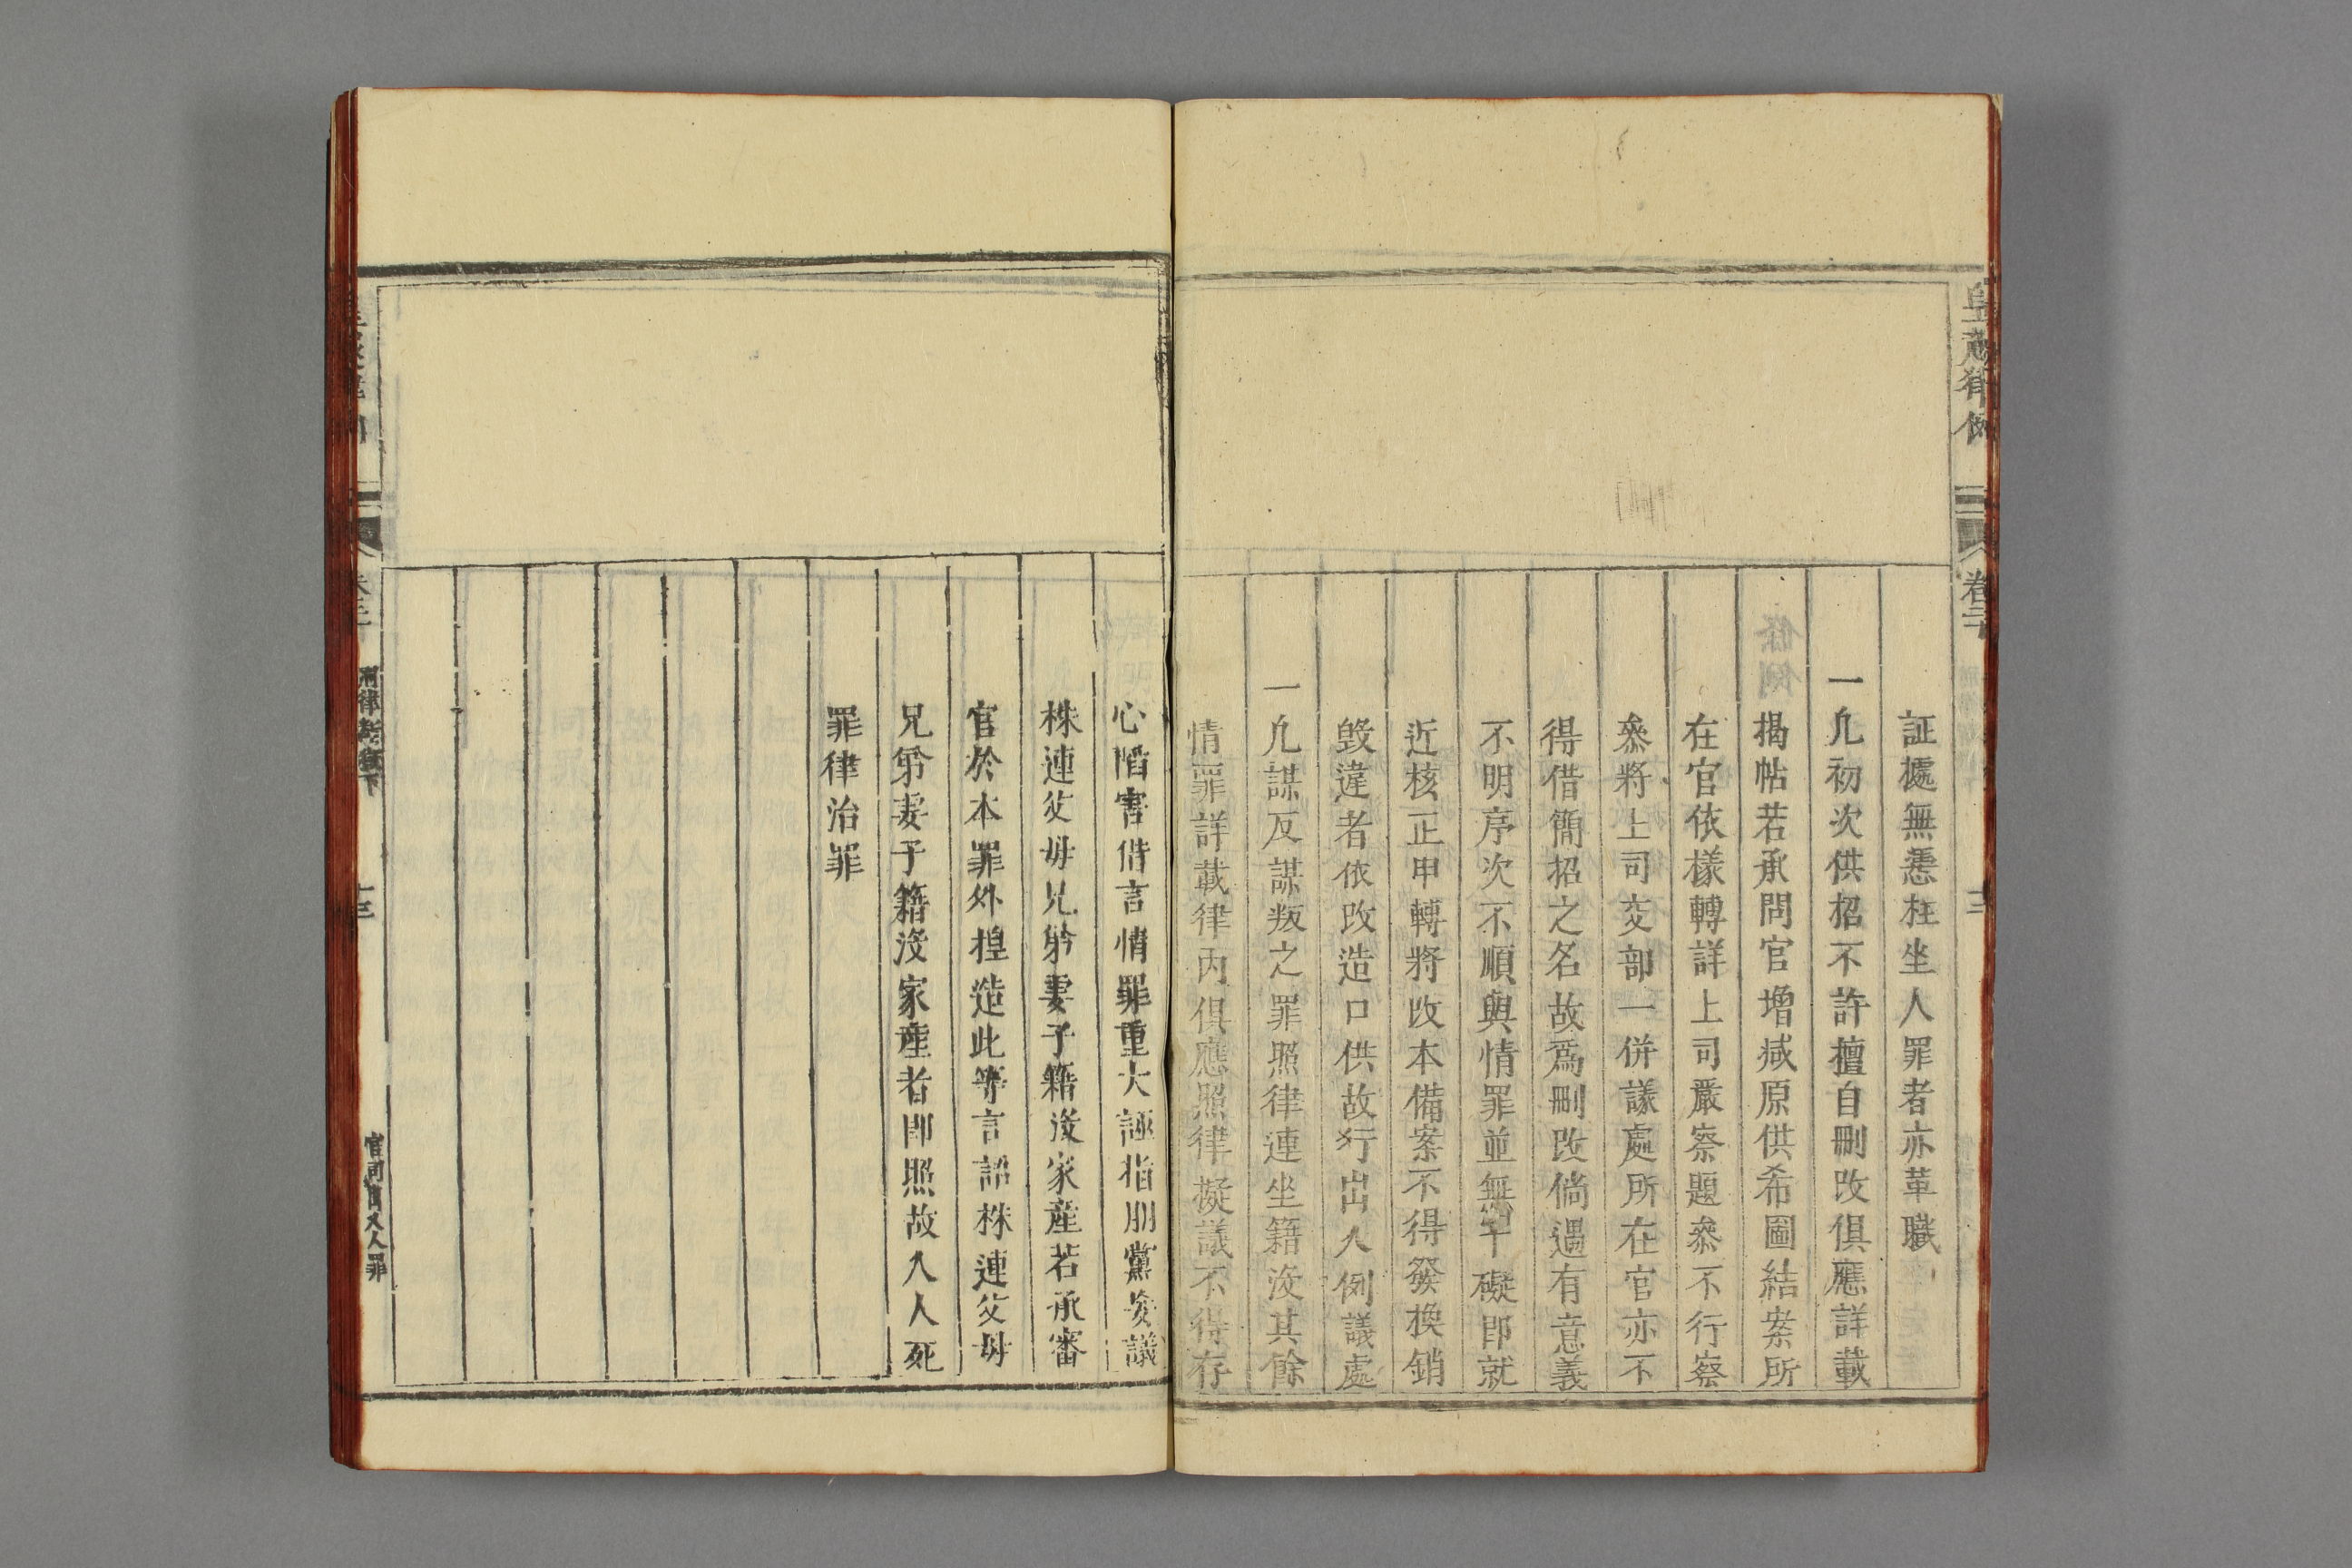 証據無憑枉坐人罪者亦革職
一凢初次供招不許擅自刪改俱應詳載
揭帖若承問官增减原供希圖結案所
在官依樣轉詳上司嚴察題叅不行察
叅將上司交部一併議處所在官亦不
得借簡招之名故爲刪改倘遇有意義
不明序次不順與情罪並無干礙即就
近核正申轉將改本備案不得發換銷
毀違者依改造口供故行出入例議處
一凢謀反謀叛之罪照律連坐籍没其餘
情罪詳載律内俱應照律擬議不得存
心陷害借言情罪重大誣指朋黨妄議
株連父母兄弟妻子籍没家産若承審
官於本罪外揑造此等言詔株連父母
兄弟妻子籍没家産者即照故入人死
罪律治罪